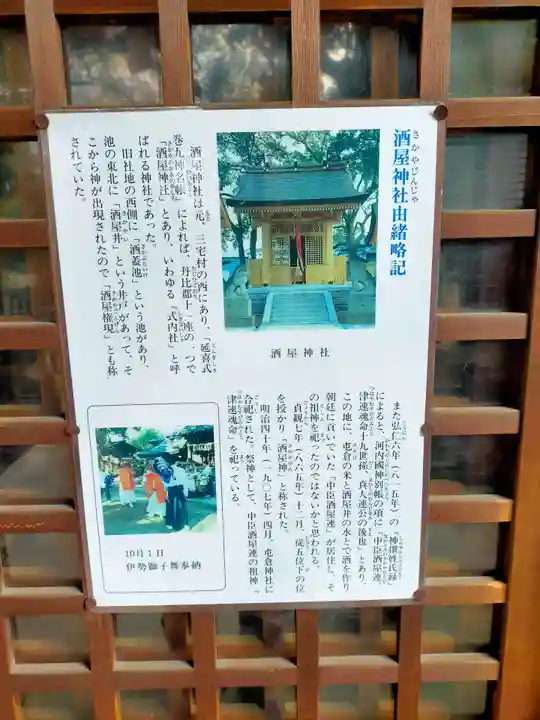 酒屋神社由緒略記
さかやじんじゃ
酒屋神社
酒屋神社は元、三宅村の西にあり、「延喜式
巻九神名帳」によれば、丹比郡十一座の一つで
「酒屋神社」とあり、いわゆる「式内社」と呼
ばれる神社であった。
旧社地の西側に「酒蓋池」という池があり、
池の東北に「酒屋井」という井戸があって、そ
こから神が出現されたので「酒屋権現」とも称
されていた。
また弘仁六年(八一五年)の「神撰姓氏録」
によると、河内國神別帳の項に「中臣酒屋連、
津速魂命十九世孫、真人連公の後也」とあり、
この地に、屯倉の米と酒屋井の水とで酒を作り
朝廷に貢いでいた「中臣酒屋連」が居住し、そ
の祖神を祀ったのではないかと思われる。
貞観七年(八六五年)十二月、従五位下の位
を授かり「酒屋神」と称された。
明治四十年(一九〇七年)四月、屯倉神社に
合祀された。祭神として、中臣酒屋連の祖神「
津速魂命」を祀っている。
10月1日
伊勢獅子舞奉納